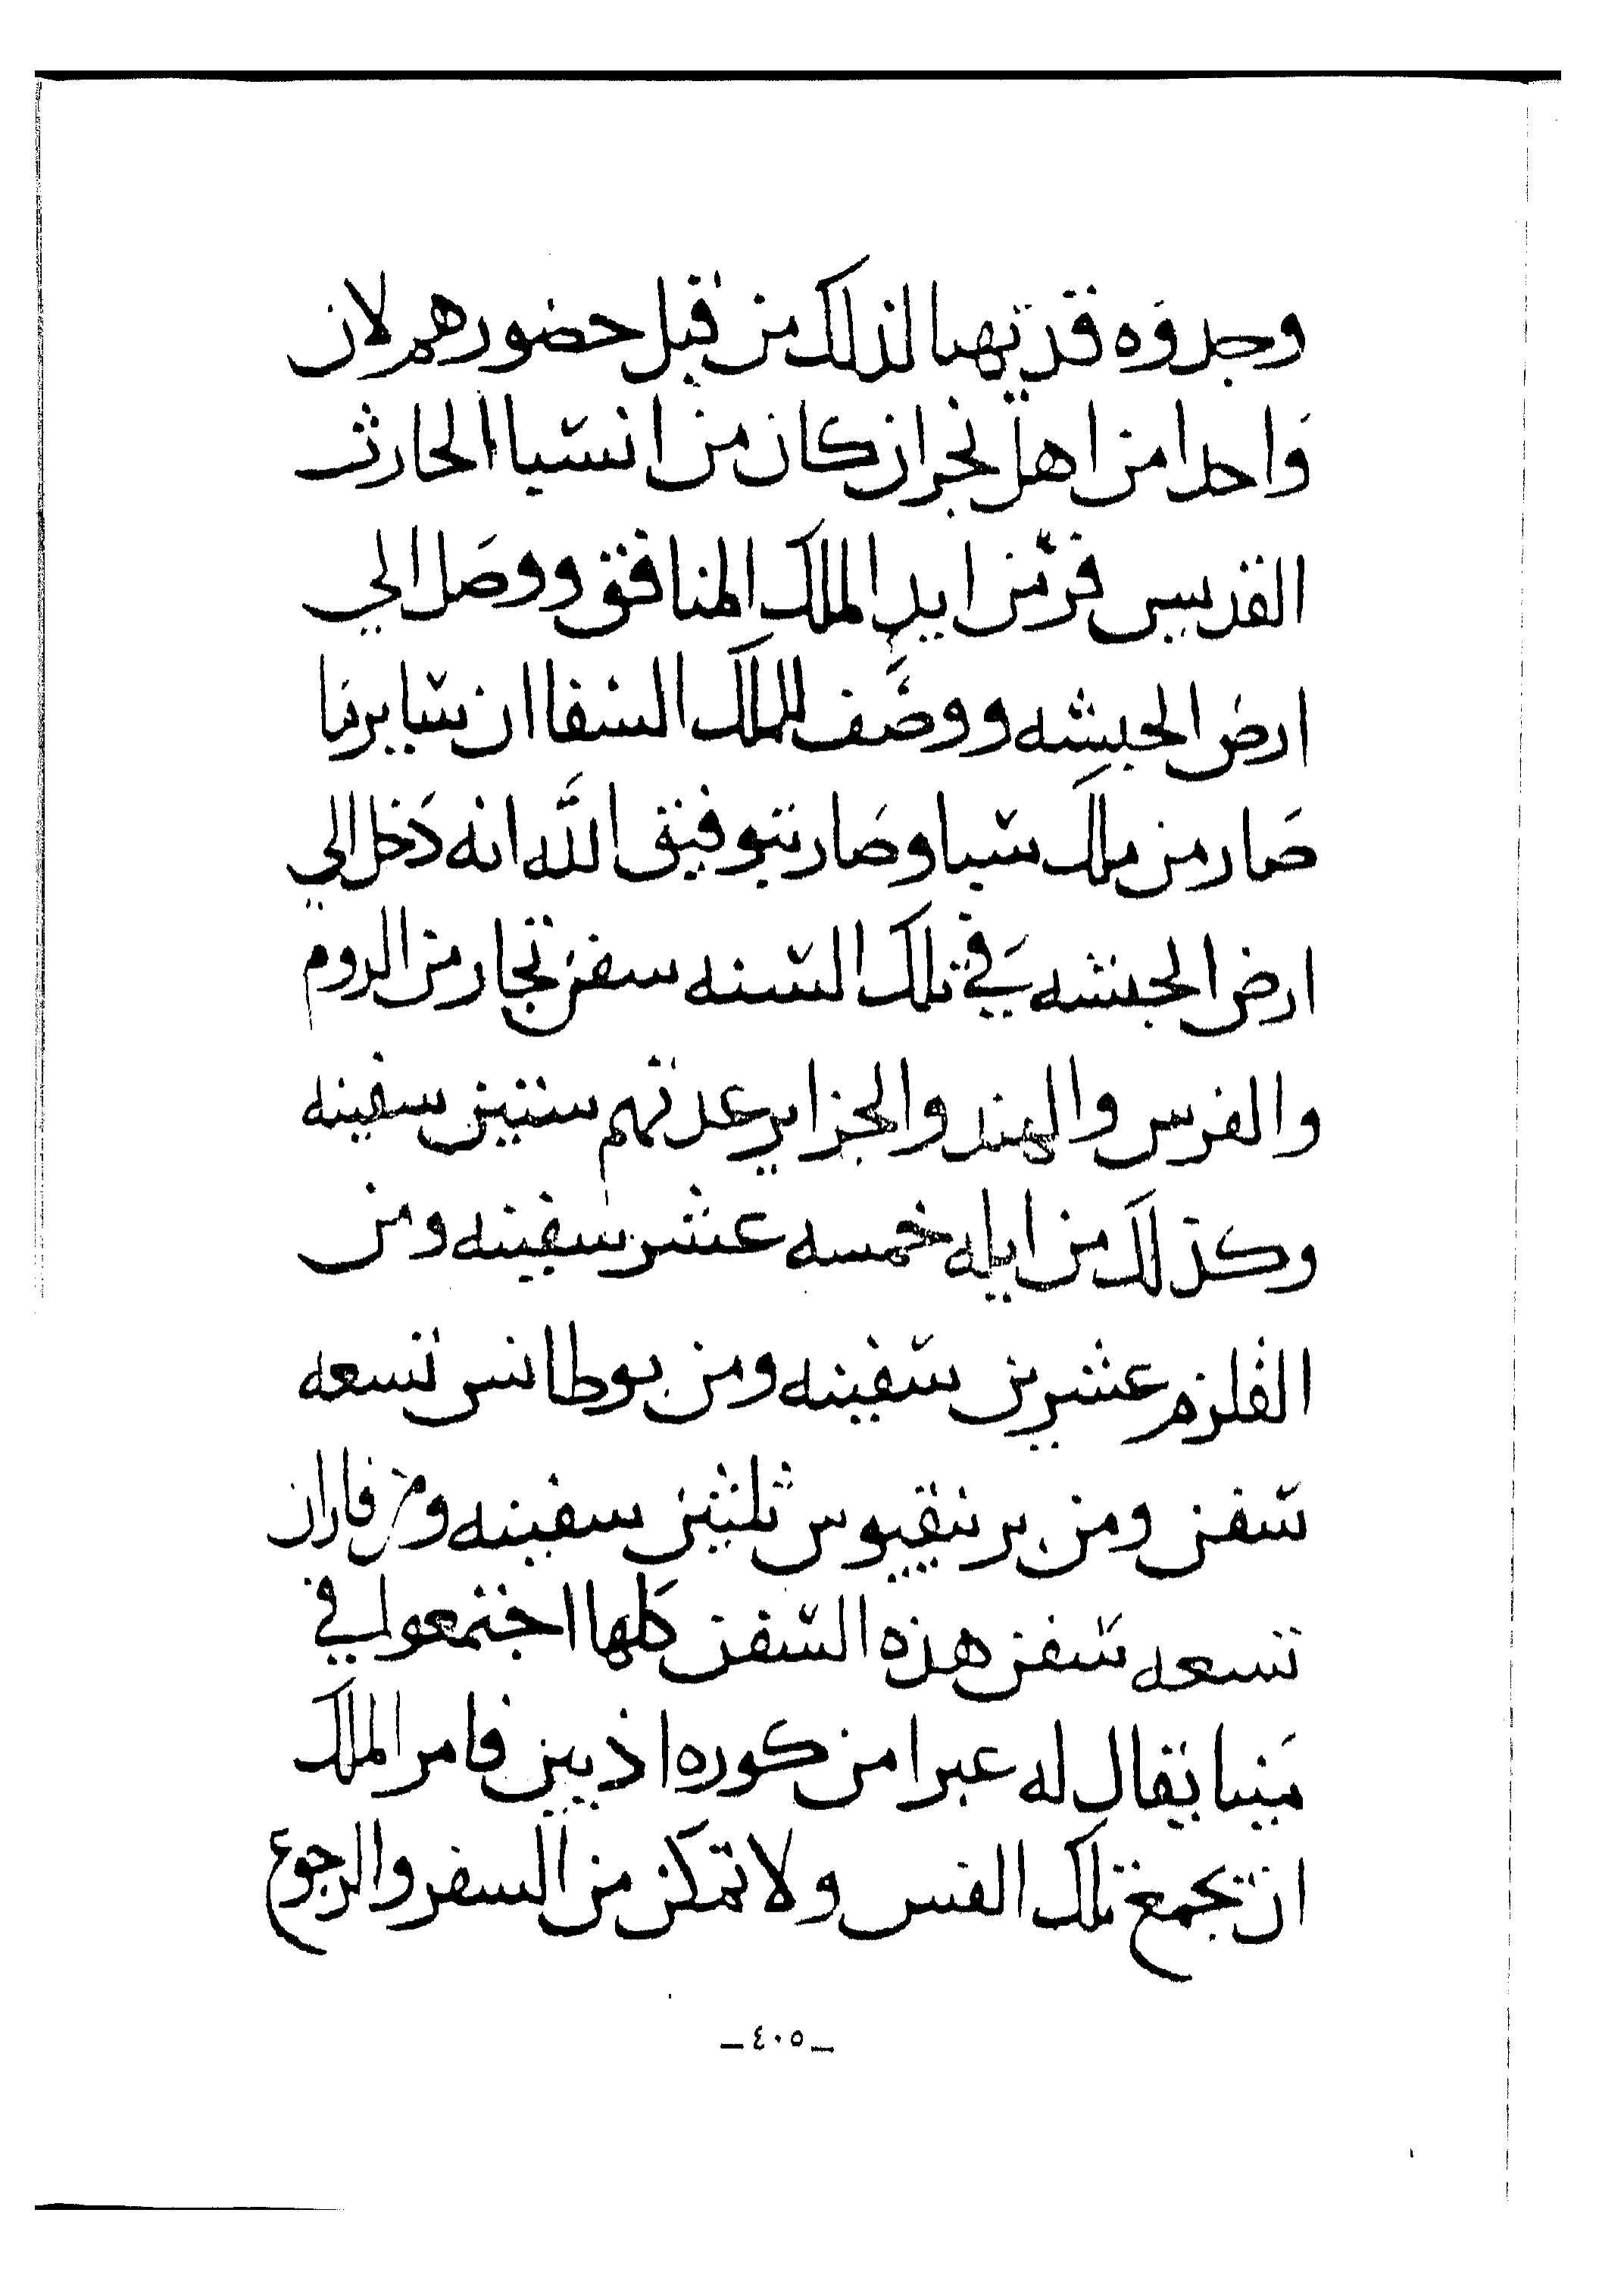 وجدوه قد تهيا لذلك من قبل حضورهم لان
واحدا من اهل نجران كان من انسبا الحارث
القديس فر من ايد الملك المنافق ووصل الي
ارض الحبشه ووصف للملك الشفا ان سبا برنا
صار من ملك سبا وصار بتوفيق الله انه دخل الي
ارض الحبشه في تلك السنه سفن تجار من الروم
والفرس والهند والجزاير عدتهم ستين سفينه
وكذلك من ايله خمسه عشر سفينه ومن
القلزم عشرين سفينه ومن بوطانس تسعه
سفن ومن برنيقيوس ثلثين سفينه ومن فاران
تسعه سفن هذه السفن كلها اجتمعوا في
مينا يقال له عبرا من كوره اذيين فامر الملك
ان تجمع تلك الفس ولا تمكن من السفر والرجوع
_٤٠٥_